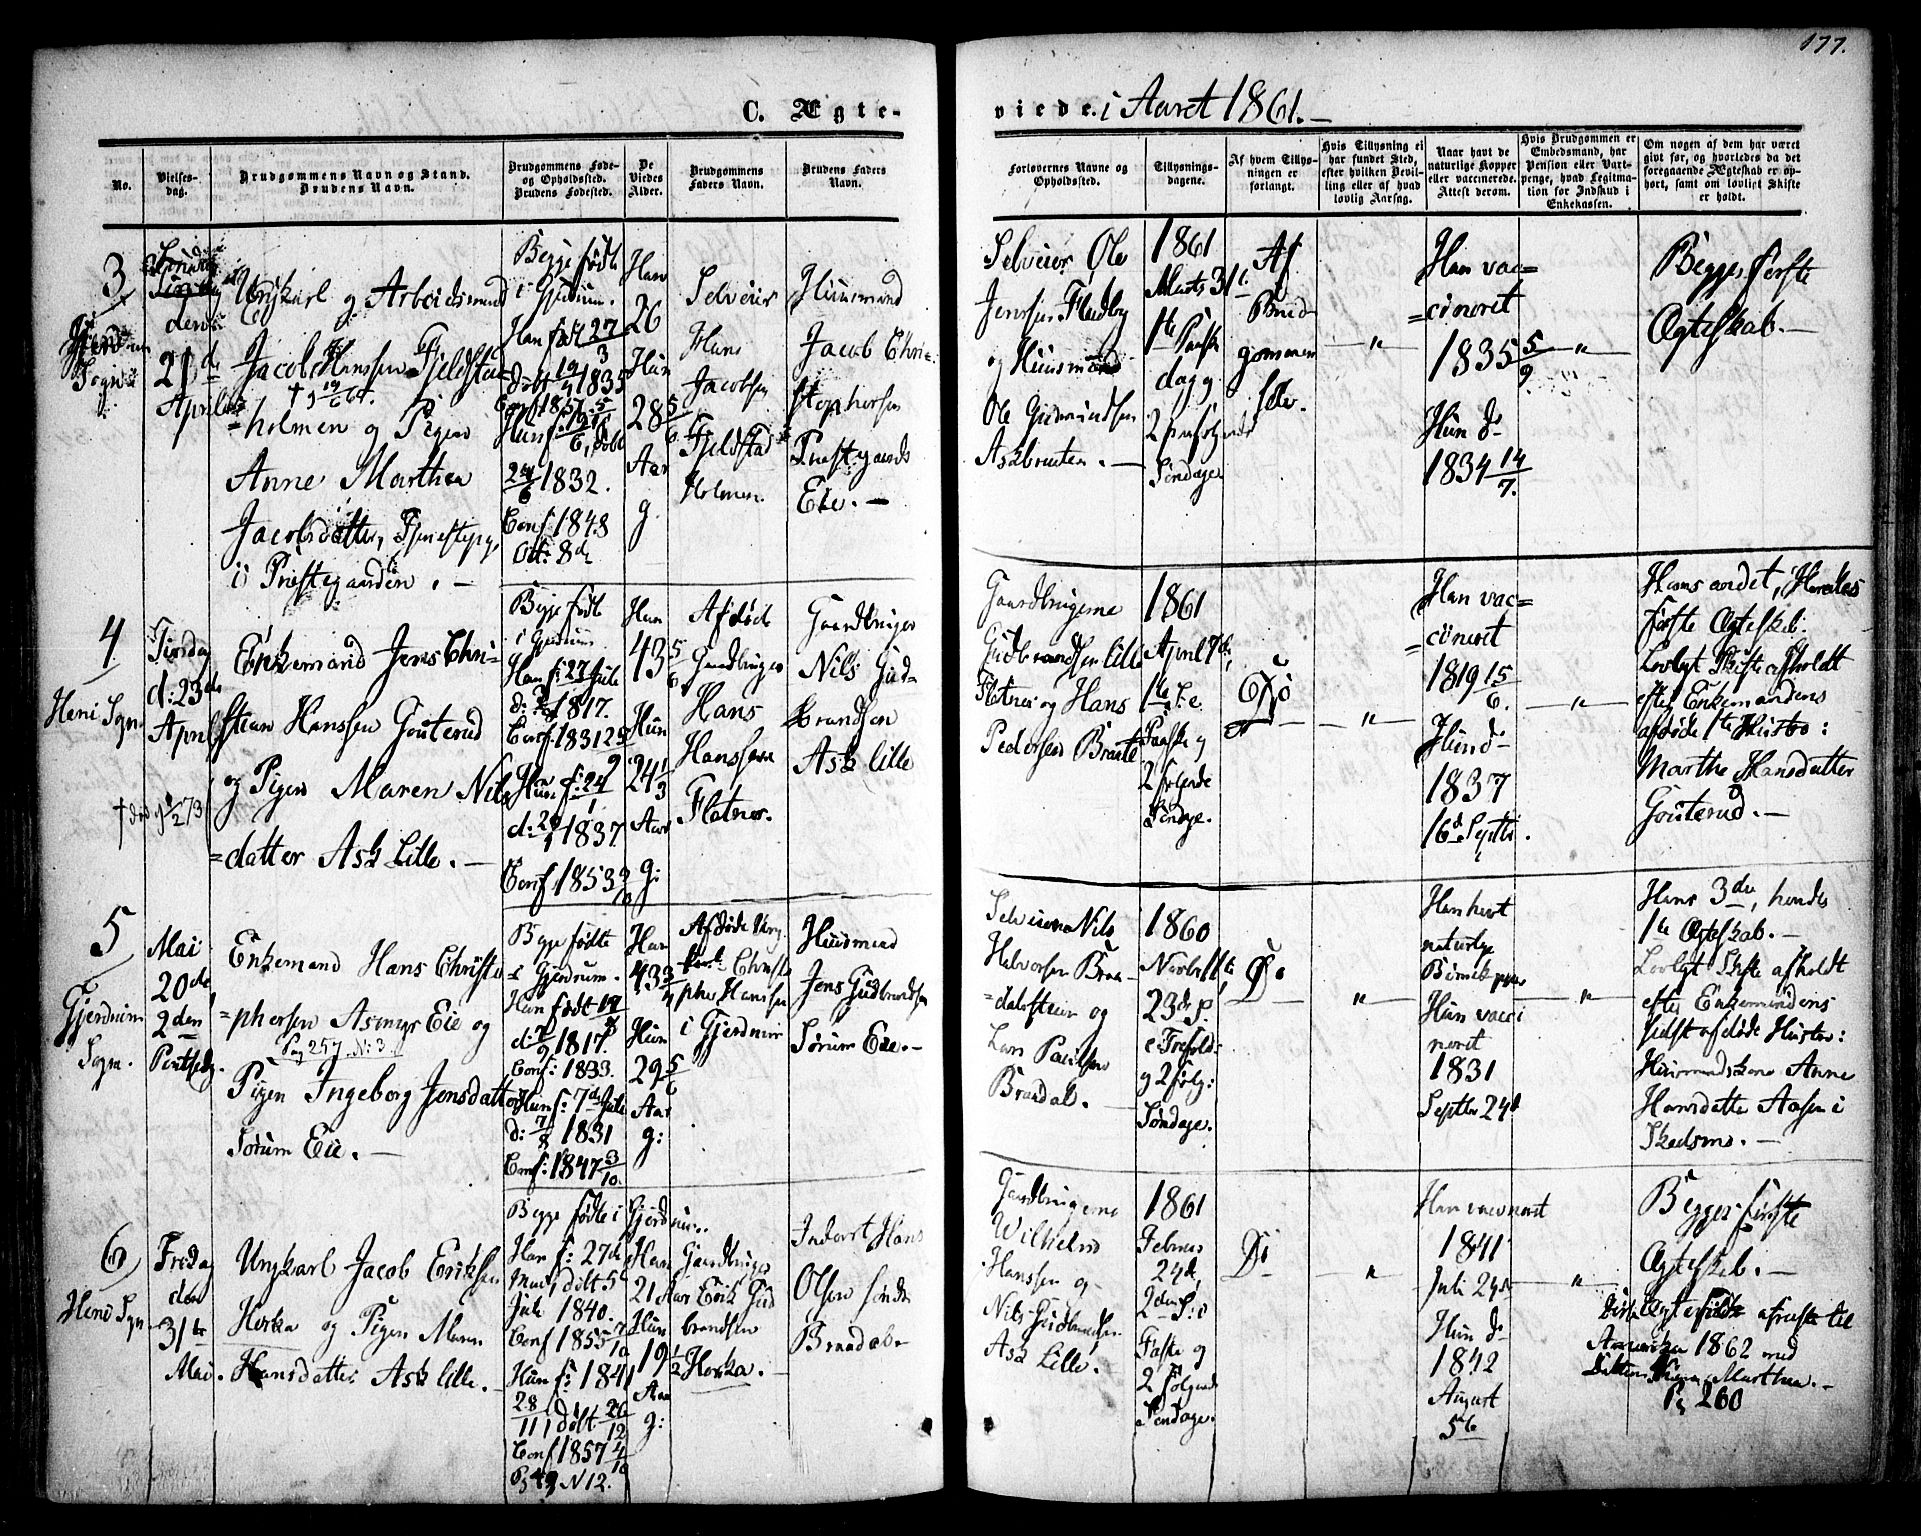 177.
C. Ægte-
viede. i Aaret 1861.-
No.
Vielses-
dag.
Brudgommens Navn og Stand.
Brudens Navn.
Brudgommens Føde-
og Opholdssted.
Brudens Fødested.
De
Viedes
Alder.
Brudgommens
Faders Navn.
Brudens Faders
Navn.
Forlovernes Navne og
Opholdssted.
Tillysnings-
dagene.
Af hvem Tillys-
ningen er
forlangt.
Hvis Tillysning ei
har fundet Sted,
efter hvilken Bevil-
ling eller af hvad
lovlig Aarsag.
Naar havt de
naturlige Kopper
eller vaccinerede.
Attest derom.
Hvis Brudgommen er
Embedsmand, har
Pension eller Vart-
penge, hvad Legitima-
tion for Indskud i
Enkekassen.
Om nogen af dem har været
givt før, og hvorledes da det
foregaaende Ægteskab er op-
hørt, samt om lovligt Skifte
er holdt.
3
Sogn
den
21de
April
Ungkarl og Arbeidsmand
Jacob Hanssen Fjeldstad
† 19/6 64.
=holmen og Pigen
Anne Marthea
Jacobsdatter,
i Præstegaarden. -
Begge fødte
i Gjerdrum.
Han født 27/3
døbt 19/4 1835
Hun f:
døbt
24/6 1832.
Conf 1848
Oct: 8de
Han
26
Hun
28 5/6
Aar
g.
Selveier
Hans
Jacobsen
Fjeldstad
Holmen.
Huusmand
Jacob Chri=
stophersen
Præstegaards
Eie. -
Selveier Ole
Jensen Fladby
og Huusmand
Ole Gudmundsen
Askbraaten. -
1861
Marts 31te
1te Paaske
dag og
2 paafølgende
Søndage
Af
Brud
gommen
selv.
"
Han vac=
=cineret
1835 5/9
Hun do
1834 14/7.
"
Begges første
Ægteskab. -
4
Heni Sogn
Tirsdag
d: 23de
April
† død 1/2 73
Enkemand Jens Chri-
stian Hanssen Gouterud
og Pigen Maren Nils
=datter Ask Lille. -
Begge fødte
i Gjerdrum
Han f: 27 Juli
1817.
Conf: 1831 25/9
Hun f: 24/1
d: 26/1 1837.
Conf 1853
Han
43 5/6
Hun
24 1/3
Aar
g:
Afdøde
Gaardbruger
Hans
Hanssen
Flatner.
Gaardbruger
Nils Gud-
brandsen
Ask lille
Gaardbrugerne
Gudbrandsen lille
Flatner og Hans
Pedersen Braate
1861
April
Paaske og
2 følgende
Søndage.
Do
"
Han vac=
=cineret
1819 15/6.
Hun do
1837
16de Septbr.
"
Hans andet, Hendes
første Ægteskab.
Lovligt Skifte afholdt
efter Enkemandens
afdøde 1te Hustro:
Marthe Hansdatter
Gouterud. -
5
Gjerdrum
Sogn.
Mai
20de
2den
Pintsedag.
Enkemand Hans Christo
=phersen Asmyr Eie og
Pag 257 N: 3
Pigen Ingeborg Jensdatter
Sørum Eie. -
Begge fødte
i Gjerdrum.
Han født
1817.
Conf: 1833.
Hun f: 7de Juli
d: 7/8 1831
Conf: 1847 3/10.
Han
43 3/4
Hun
29 5/6
Aar
g:
Afdøde Ung
karl Christo
pher Hanssen
i Gjerdrum
Huusmand
Jens Gudbrandsen
Sørum Eie. -
Selveierne Nils
Halvorsen Braa
=dalsteen og
Lars Paulsen
Braadal. -
1860
Novbr 11te
23de S.
e: Trefold:
og 2 følg:
Søndage.
Do
"
Han havt
naturlige
Børnekopper
Hun vacci
neret
1831
Septbr 24de
"
Hans 3die, hendes
1te Ægteskab. -
Lovligt Skifte afholdt
efter Enkemandens
sidst afdøde Hustro:
Huusmandskone Anne
Hansdatter Aasen i
Skedsmo. -
6
Heni Sogn.
Fredag
den
31te
Mai.
Ungkarl Jacob Eriksen
Horka og Pigen Maren
Hansdatter Ask lille. -
Begge fødte i Gjerdrum.
Han f: 27de
Mai, døbt 5te
Juli 1840.
Conf 1855 7/10
Hun f: 1841
28/11, døbt 26/12
Conf 1857 4/10
Pg 49 N 12.
Han
21 Aar
Hun
19 1/2
Aar
g:
Gaardbruger
Erik Gud
brandsen
Horka. -
Inderst Hans
Olsen Søndre
Braadal. -
Gaardbrugerne
Wilhelm
Hanssen og
Nils Gudbrandsen
Ask Lille.
1861
Februar
24de
2den S: i
Faste og
2 følgende
Søndage.
Do
"
Han vaccineret
1841
Juli 24de
Hun do
1842
August
5te
"
Begges første
Ægteskab. -
Disse Ægtefolk afreiste til
Amerika 1862 med
Datteren Marthea. -
Pg 260